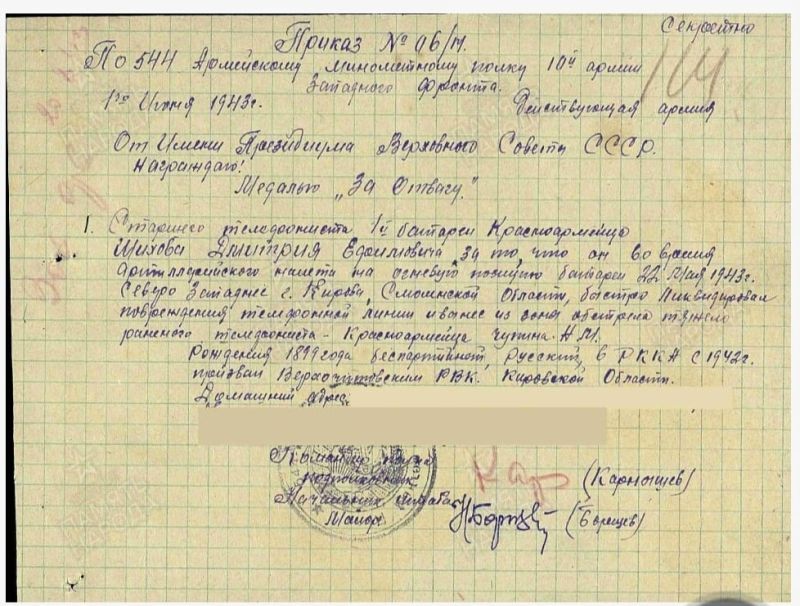 Секретно
Приказ № 06/н.
По 544 Армейскому минометному полку 10й армии
Западного фронта.
1го Июня 1943г. Действующая армия
От Имени Президиума Верховного Совета СССР.
Награждаю:
Медалью „За Отвагу"
1. Старшего телефониста 1й батареи Красноармейца
Шихова Дмитрия Ефимовича, за то, что он во время
артиллерийского налета на огневую позицию батареи 22 Мая 1943г.
Северо Западнее г. Кирова, Смоленской Области, быстро ликвидировал
повреждения телефонной линии и вынес из зоны обстрела тяжело
раненого телефониста - Красноармейца Чупина Н.М.
Рождения 1899 года беспартийный, Русский, в РККА с 1942г.
призван РВК. Кировской Области.
Домашний адрес
Командир полка
подполковник (Карнышев)
Начальник штаба
Майор (Борщев)